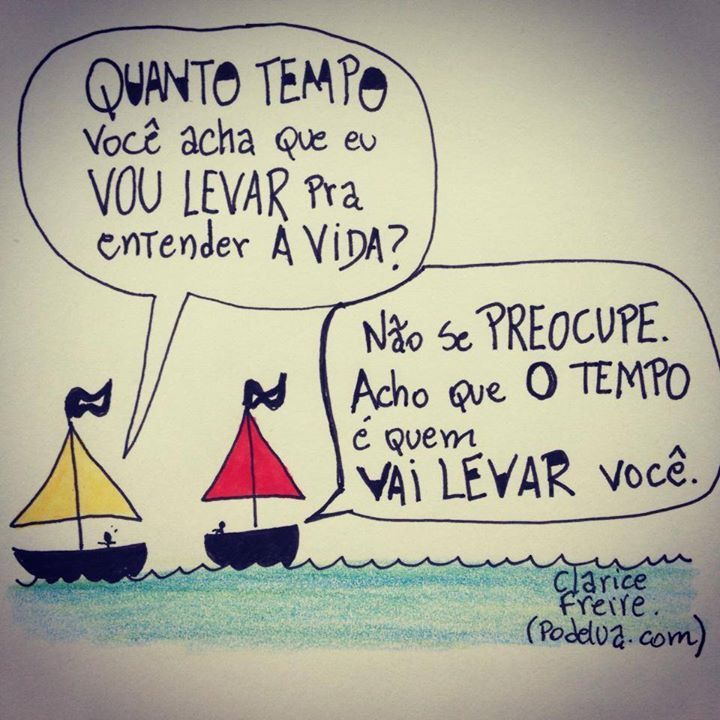 QUANTO TEMPO
você acha que eu
VOU LEVAR pra
entender A VIDA?
Não se PREOCUPE.
Acho que O TEMPO
é quem
VAI LEVAR você.
Clarice
Freire.
(Podelua.com)